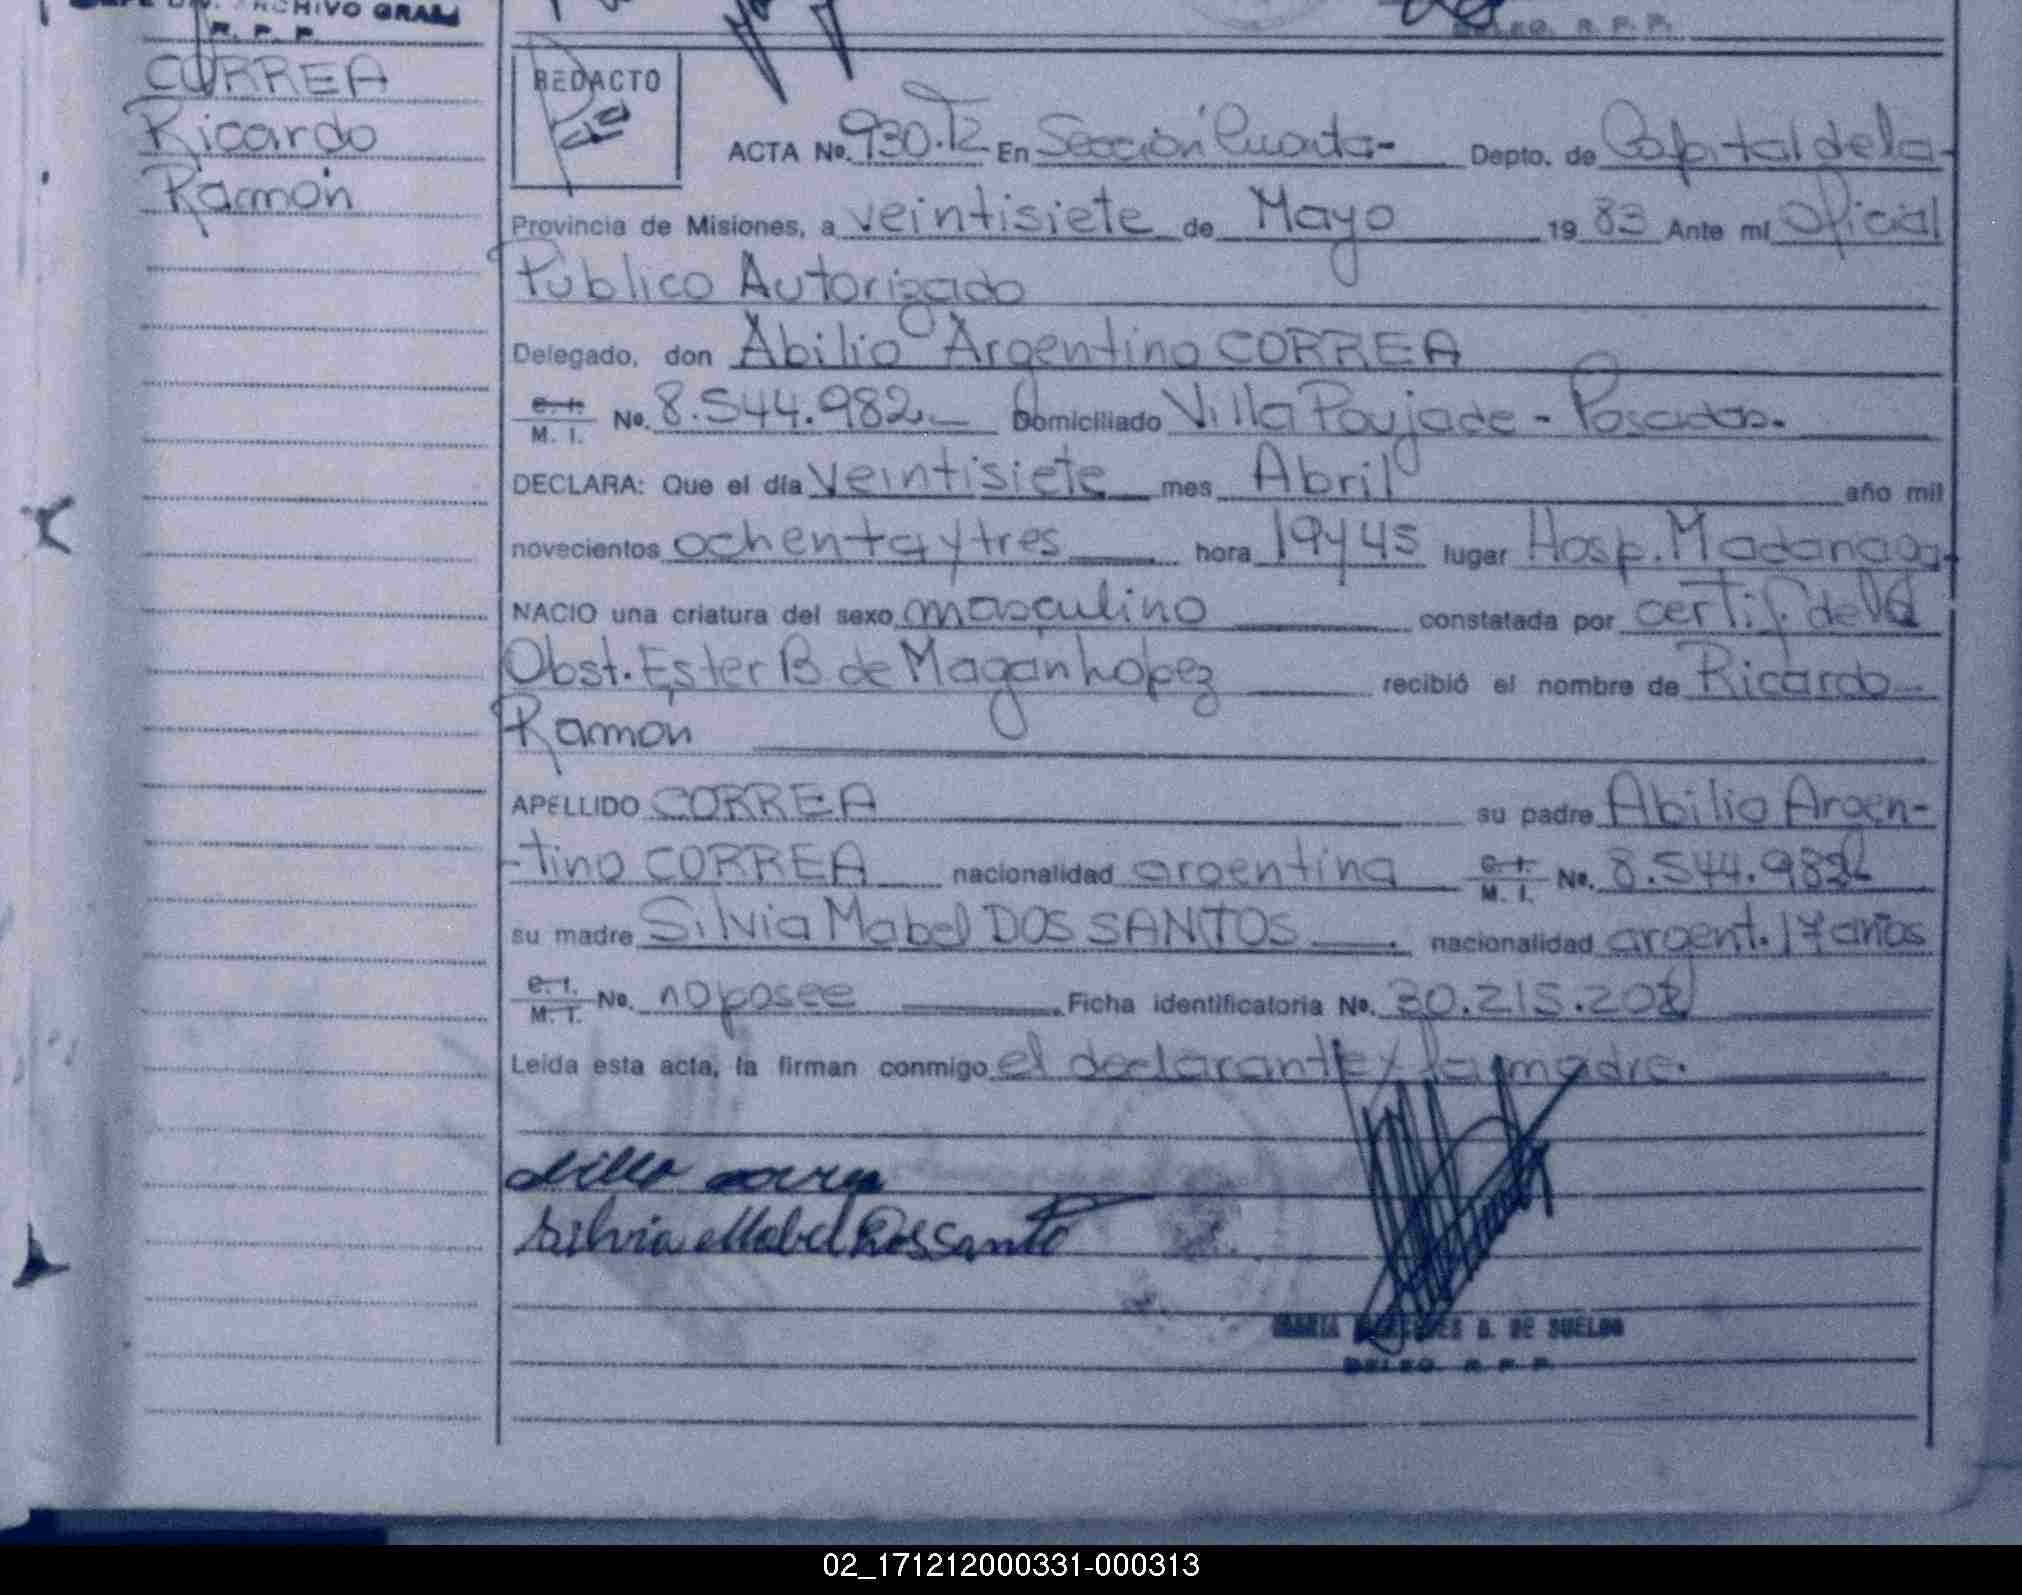 ARCHIVO GRAL
R. P. P.
CORREA
Ricardo
Ramón
DELEG. R. P. P.
REDACTO
ACTA No. 930.T2 En Sección Cuarta- Depto. de Capital de la-
Provincia de Misiones, a veintisiete de Mayo 1983 Ante mi Oficial
Público Autorizado
Delegado, don Abilio Argentino CORREA
C. I. M. I. No. 8.544.982 Domiciliado Villa Poujade - Posadas.
DECLARA: Que el día veintisiete mes Abril año mil
novecientos ochenta y tres hora 19y45 lugar Hosp. Madariaga-
NACIO una criatura del sexo masculino constatada por certif. de la
Obst. Ester B de Magán López recibió el nombre de Ricardo
Ramón
APELLIDO CORREA su padre Abilio Argen-
-tino CORREA nacionalidad argentina C. I. M. I. No. 8.544.982
su madre Silvia Mabel DOS SANTOS nacionalidad argent. 17 años
C. I. M. I. No. no posee Ficha identificatoria No. 30.215.202
Leída esta acta, la firman conmigo el declarante y la madre.
Silvia Mabel Dos Santo
MARIA B. DE SUELDO
DELEG. R. P. P.
02_171212000331-000313